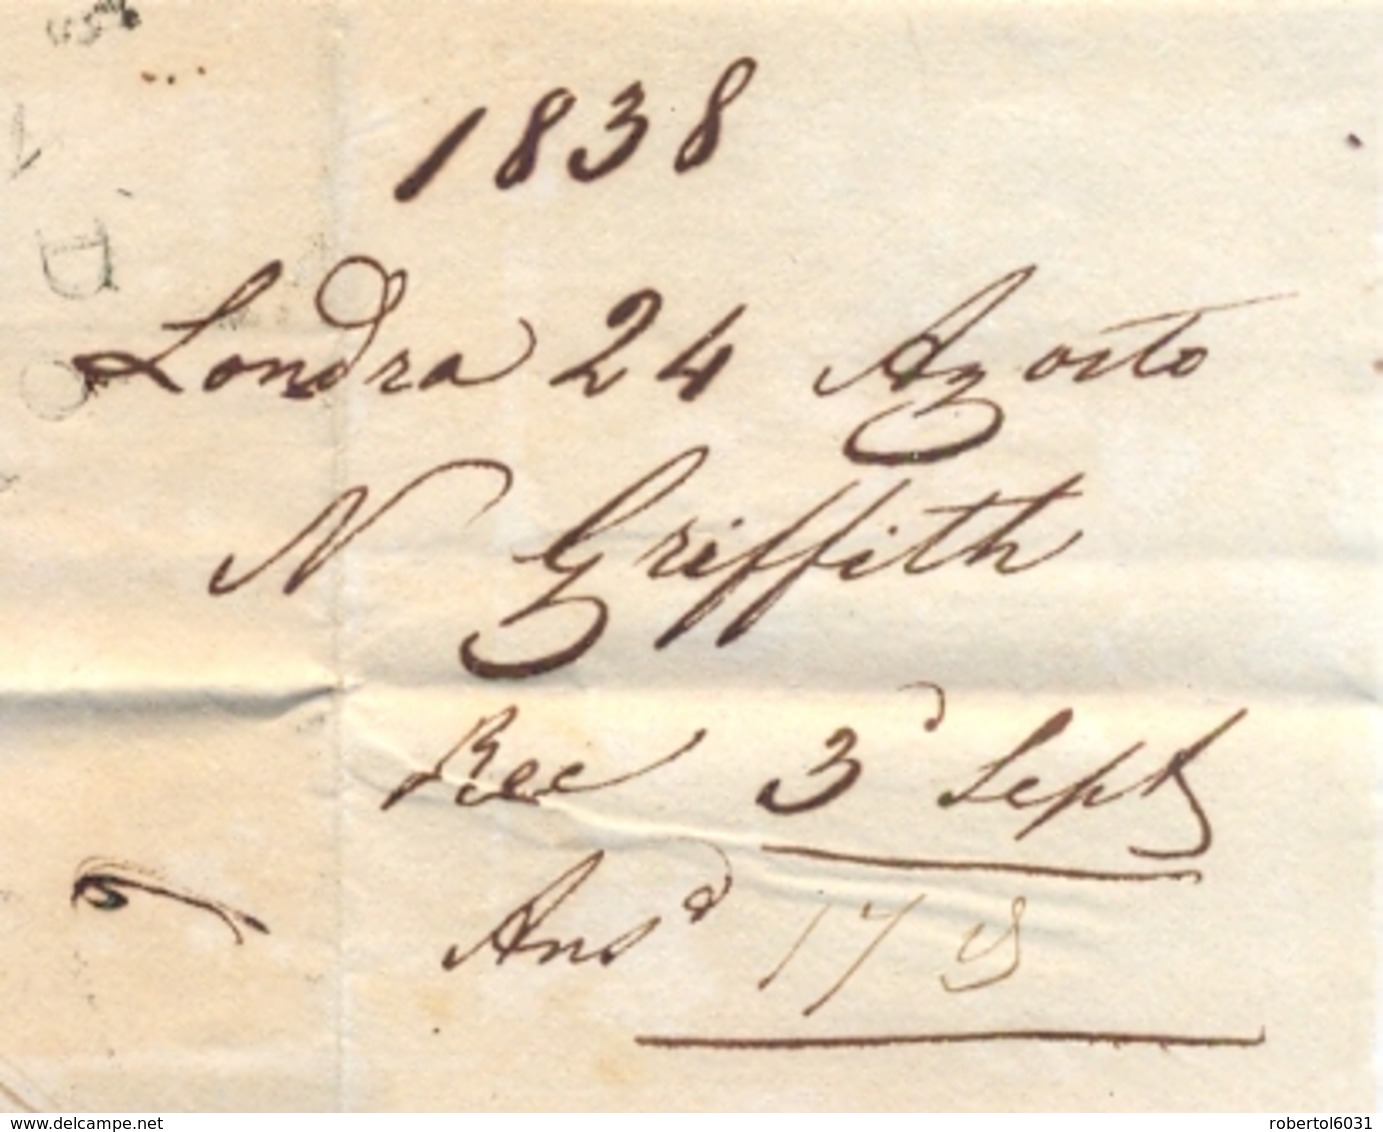 1838
Londra 24 Agosto
N Griffith
Rec 3d Sept
Ansd 17
delcampe.net
robertol6031